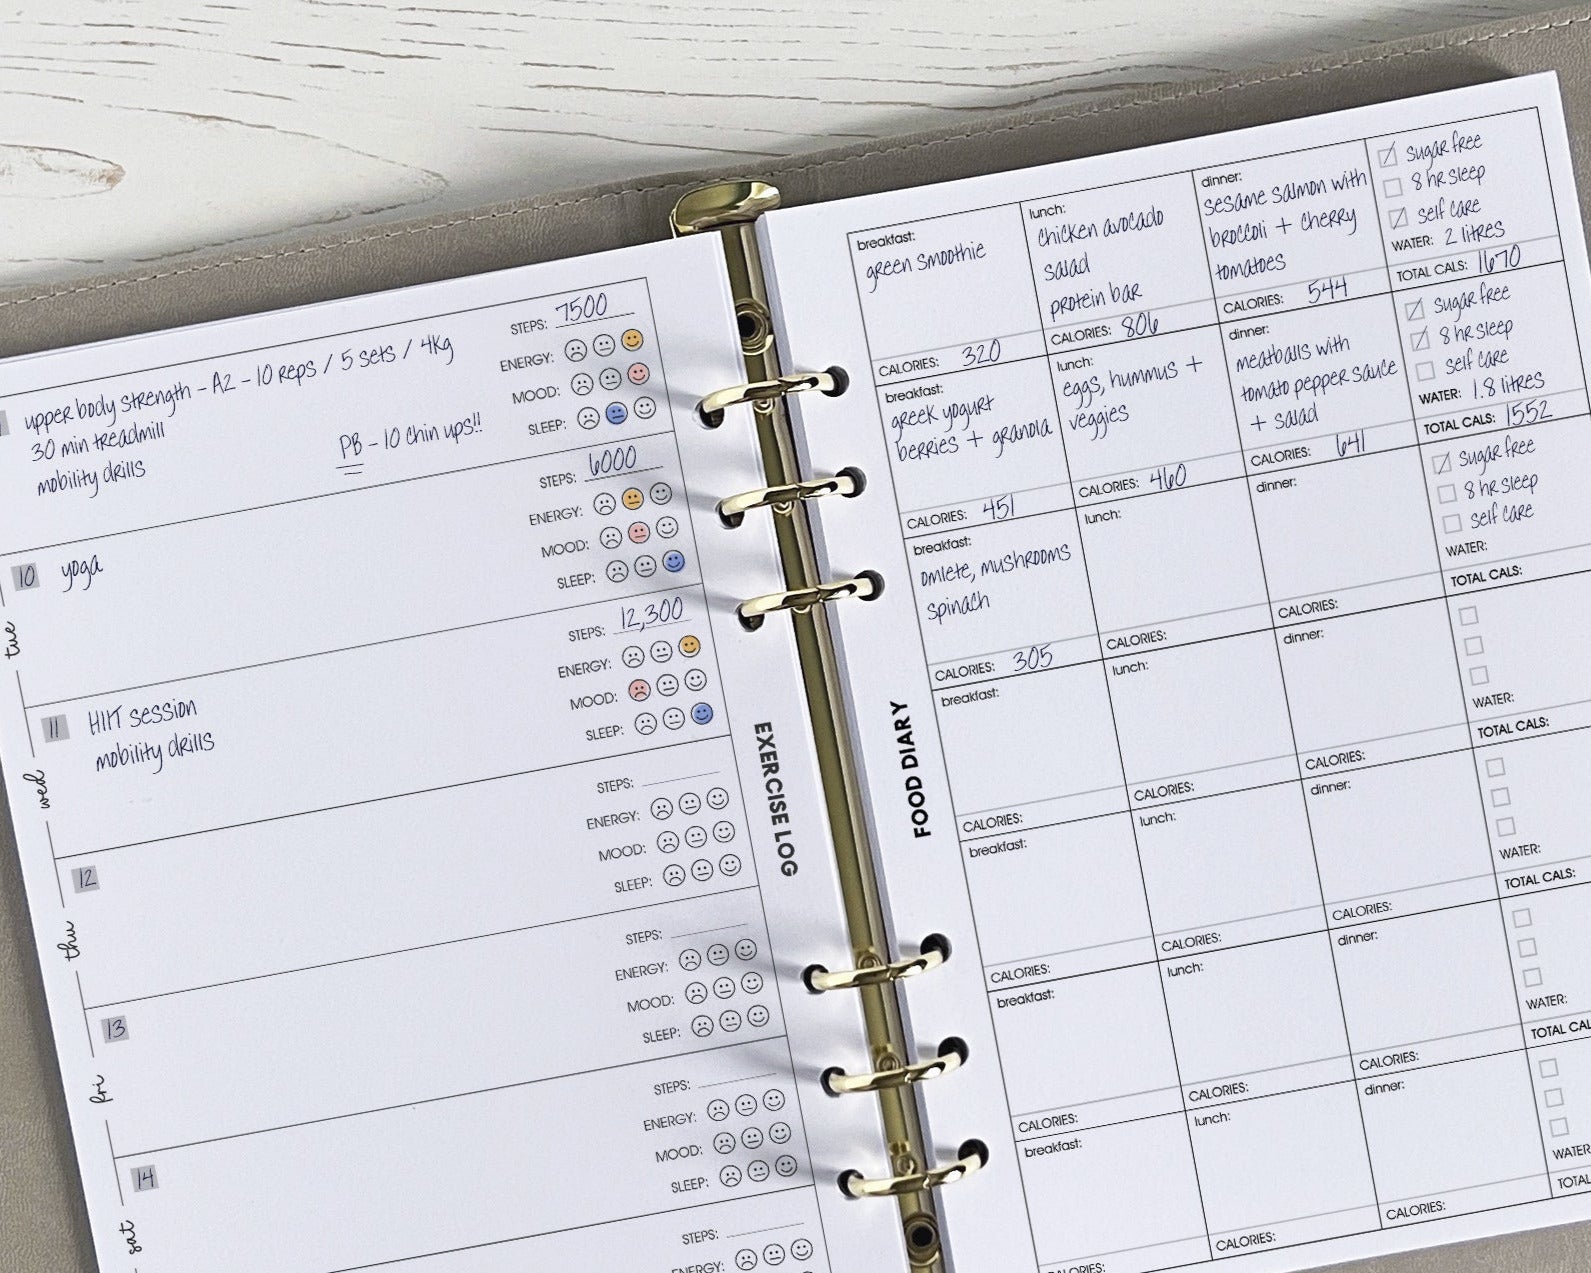 upper body strength - A2 - 10 reps / 5 sets / 4kg
30 min treadmill
mobility drills
PB - 10 chin ups!!
STEPS: 7500
ENERGY:
MOOD:
SLEEP:
tue
10
yoga
STEPS: 6000
ENERGY:
MOOD:
SLEEP:
wed
11
HIIT session
mobility drills
STEPS: 12,300
ENERGY:
MOOD:
SLEEP:
thu
12
STEPS:
ENERGY:
MOOD:
SLEEP:
fri
13
STEPS:
ENERGY:
MOOD:
SLEEP:
sat
14
STEPS:
ENERGY:
MOOD:
SLEEP:
STEPS:
ENERGY:
EXERCISE LOG
FOOD DIARY
breakfast:
green smoothie
CALORIES: 320
lunch:
chicken avocado
salad
protein bar
CALORIES: 806
dinner:
sesame salmon with
broccoli + cherry
tomatoes
CALORIES: 544
sugar free
8 hr sleep
self care
WATER: 2 litres
TOTAL CALS: 1670
breakfast:
greek yogurt
berries + granola
CALORIES: 451
lunch:
eggs, hummus +
veggies
CALORIES: 460
dinner:
meatballs with
tomato pepper sauce
+ salad
CALORIES: 641
sugar free
8 hr sleep
self care
WATER: 1.8 litres
TOTAL CALS: 1552
breakfast:
omlete, mushrooms
spinach
CALORIES: 305
lunch:
CALORIES:
dinner:
CALORIES:
sugar free
8 hr sleep
self care
WATER:
TOTAL CALS:
breakfast:
CALORIES:
lunch:
CALORIES:
dinner:
CALORIES:
WATER:
TOTAL CALS:
breakfast:
CALORIES:
lunch:
CALORIES:
dinner:
CALORIES:
WATER:
TOTAL CALS:
breakfast:
CALORIES:
lunch:
CALORIES:
dinner:
CALORIES:
WATER:
TOTAL CAL
breakfast:
CALORIES:
lunch:
CALORIES:
dinner:
CALORIES:
WATER
TOTAL